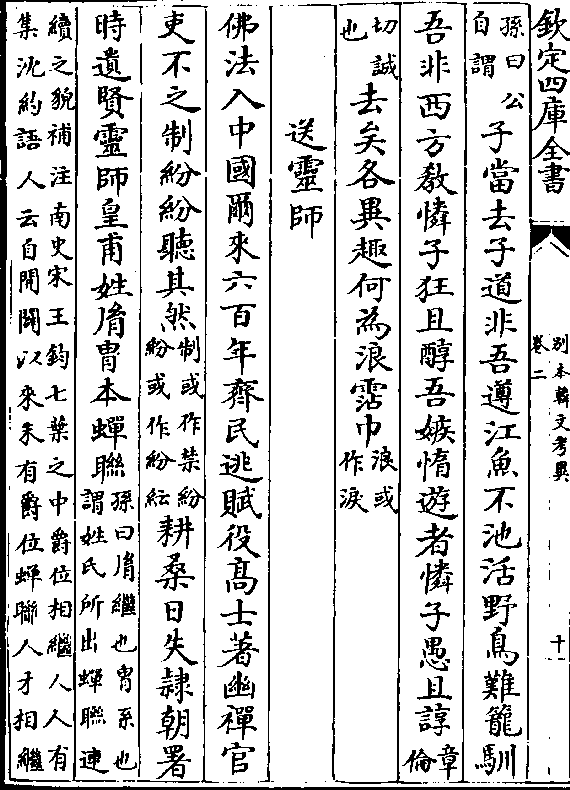 欽定四庫全書
別本韓文考異
卷二
十
孫曰公自謂子當去子道非吾遵江魚不池活野鳥難籠馴
吾非西方教憐子狂且醇吾嫉惰遊者憐子愚且諄章倫
切誠也去矣各異趣何為浪霑巾浪或作淚
送靈師
佛法入中國爾來六百年齊民逃賦役高士著幽禪官
吏不之制紛紛聽其然制或作禁紛紛或作紛紜耕桑日失隷朝署
時遺賢靈師皇甫姓胤冑本蟬聯孫曰胤繼也冑系也謂姓氏所出蟬聯連
續之貌補注南史宋王鈞七葉之中爵位相繼人人有
集沈約語人云自開闢以來未有爵位蟬聯人才相繼